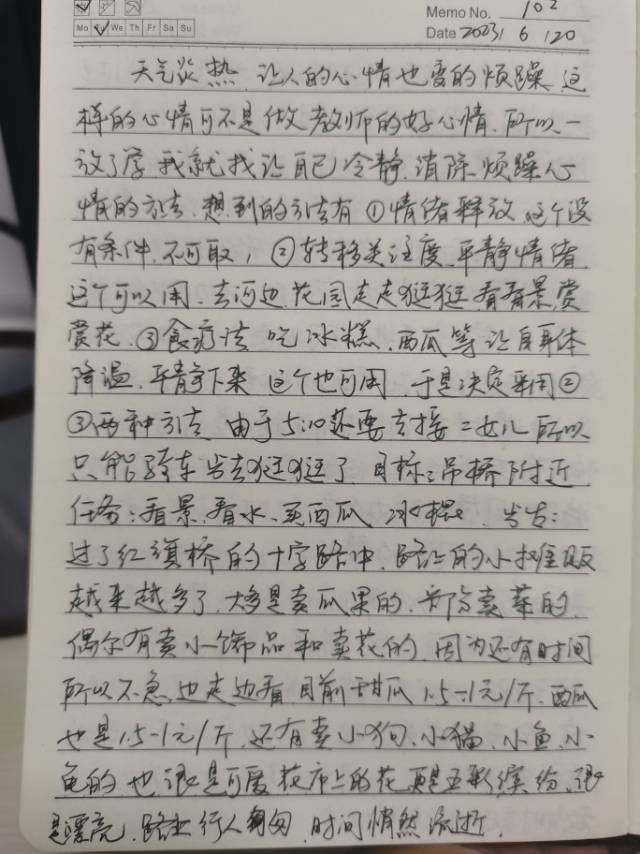 Memo No. 102
Mo Tu We Th Fr Sa Su
Date 2023/6/20
天气炎热,让人的心情也变的烦躁,这
样的心情可不是做教师的好心情,所以,一
放了学我就找让自己冷静,消除烦躁心
情的方法,想到的方法有①情绪释放,这个没
有条件,不可取,②转移关注度,平静情绪
这个可以用,去河边,花园走走逛逛,看看景,赏
赏花,③食疗法 吃冰糕,西瓜等让自身体
降温,平静下来 这个也可用,于是决定采用②
③两种方法,由于5:10还要去接二女儿,所以
只能骑车出去逛逛了,目标:吊桥附近
任务:看景,看水、买西瓜 冰棍,出发:
过了红旗桥的十字路中,路上的小摊贩
越来越多了,大多是卖瓜果的,部分卖菜的,
偶尔有卖小饰品和卖花的,因为还有时间
所以不急,边走边看,目前甜瓜1.5-1元/斤,西瓜
也是1.5-1元/斤,还有卖小狗、小猫、小鱼、小
龟的,也很是可爱,花市上的花,真是五彩缤纷,很
是漂亮,路上行人匆匆,时间悄然流逝,